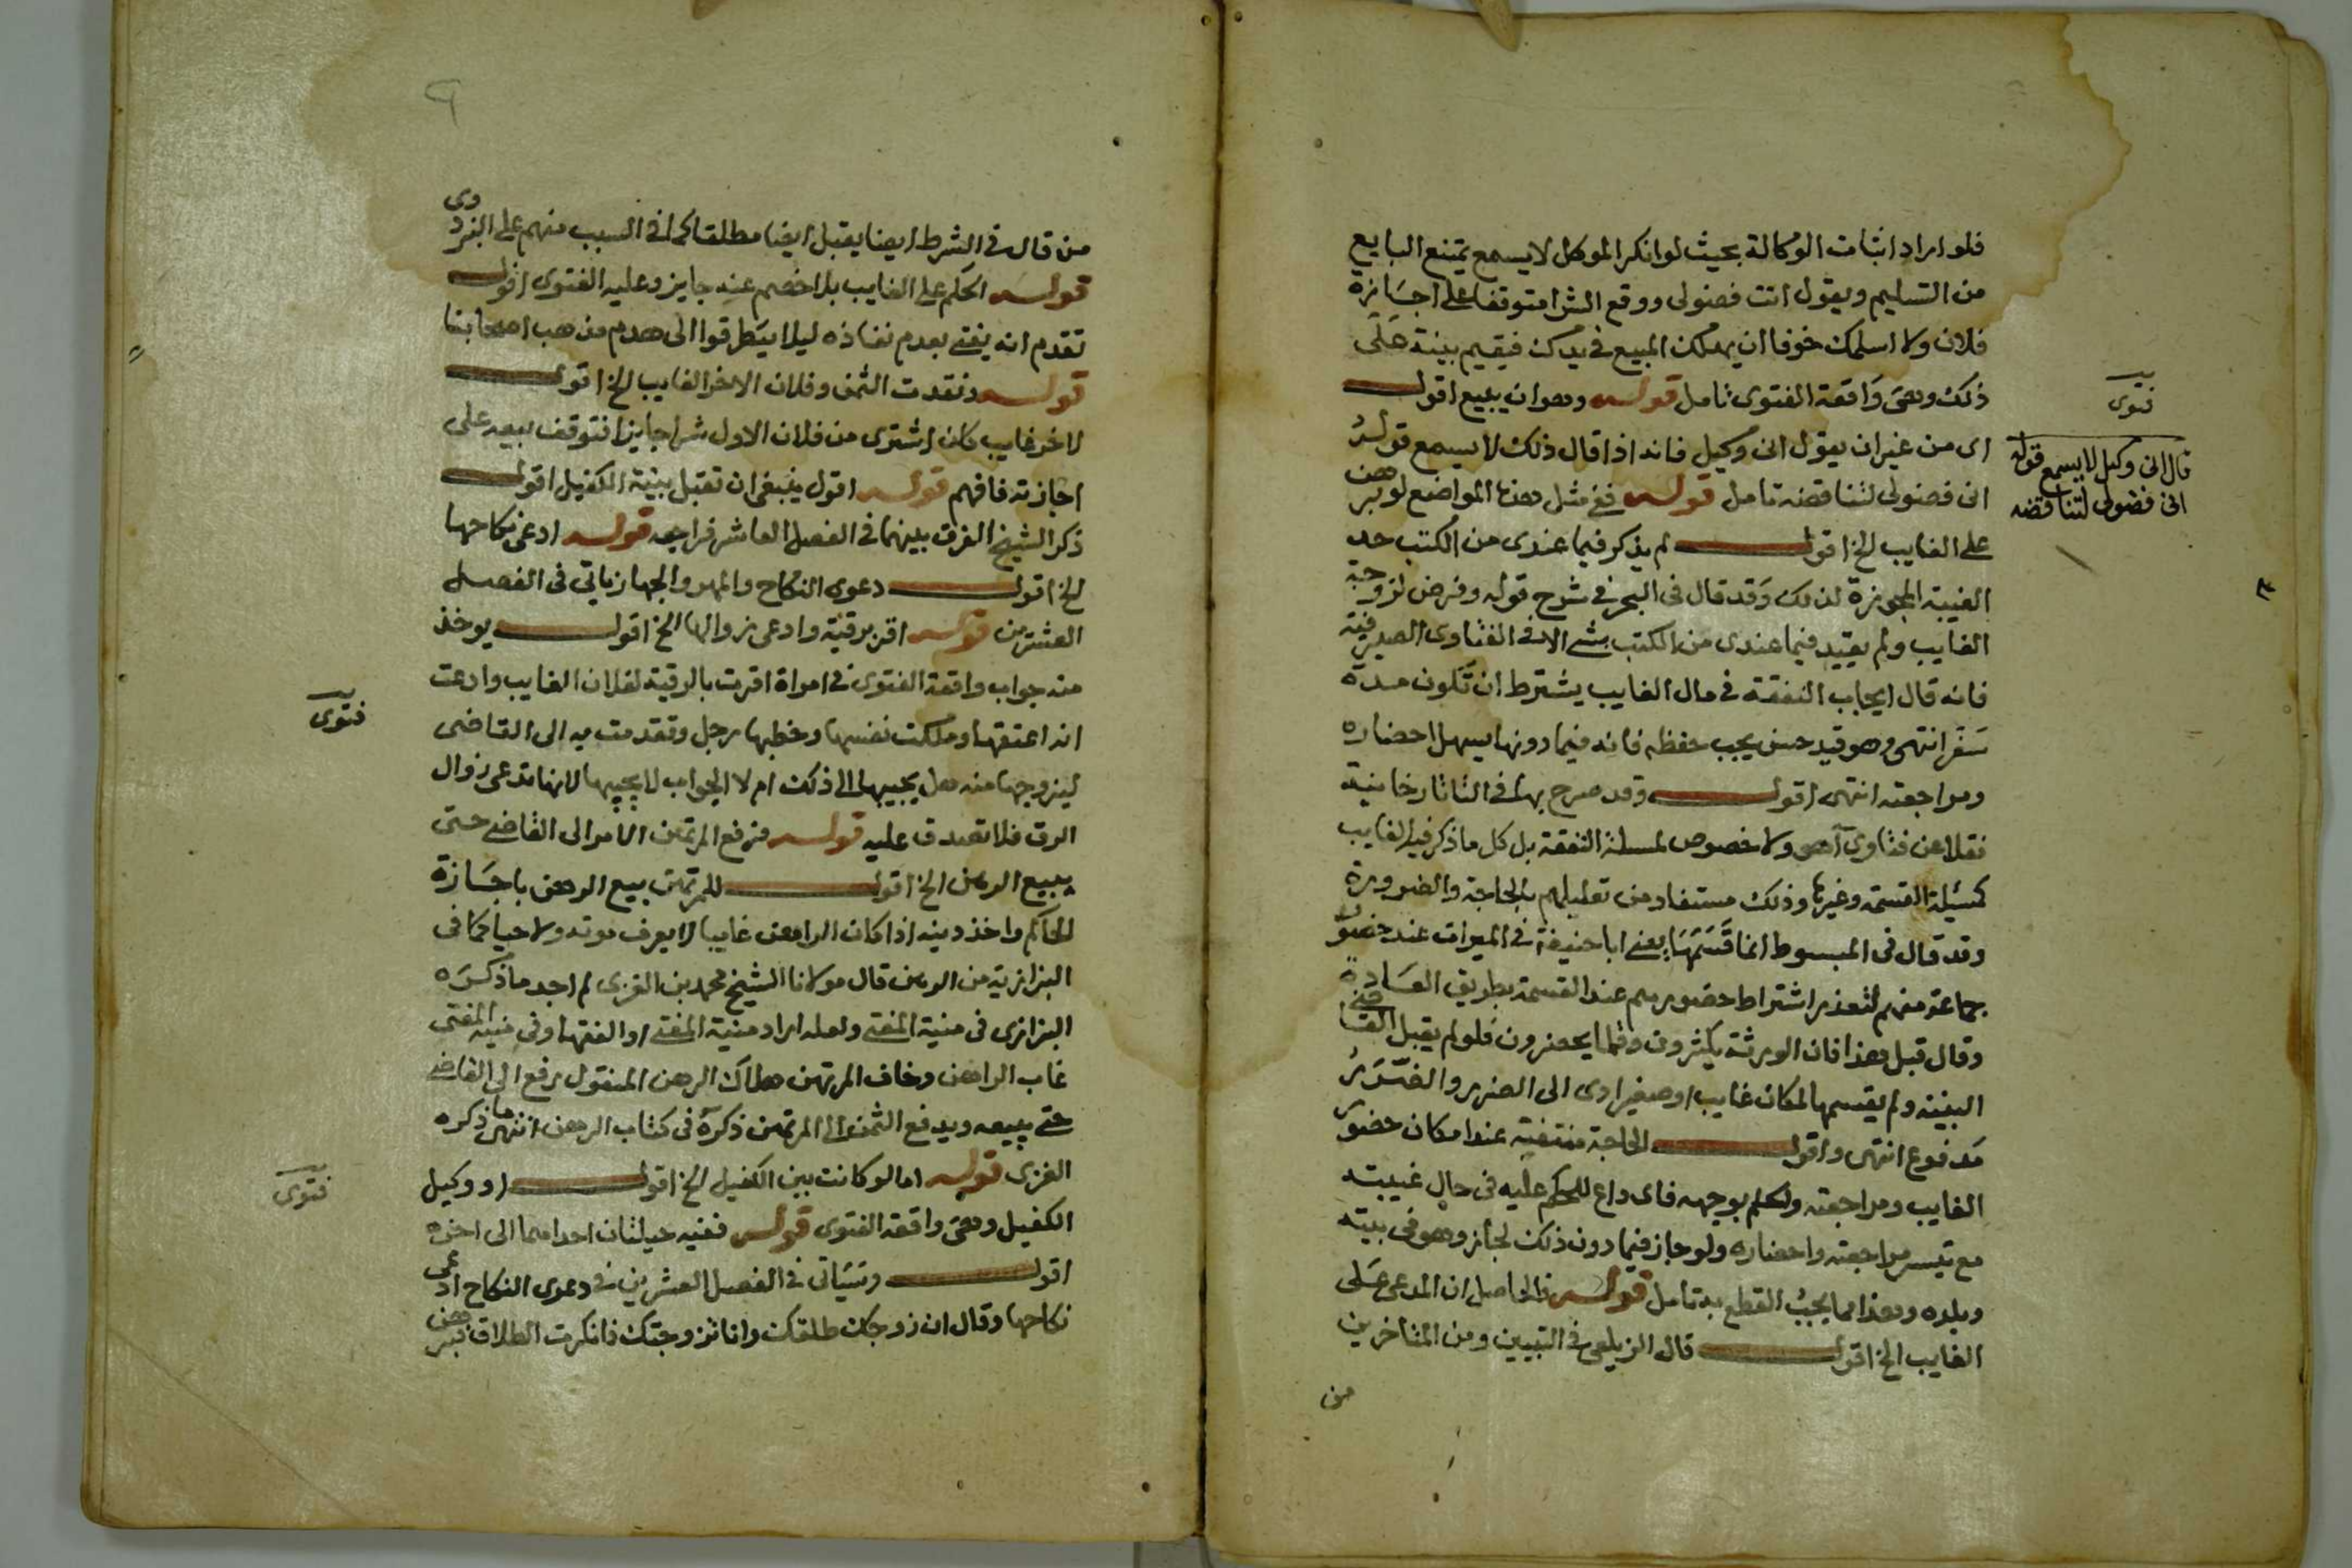 فلو اراد اثبات الوكالة بحيث لو انكر الموكل لا يسمع يمتنع البايع
من التسليم ويقول انت فضولى ووقع الشرا متوقفا على اجازة
فلان ولا اسلمك خوفا ان يهلك المبيع فى يدك فيقيم بينة على
ذلك وهى واقعة الفتوى تامل قوله وهو ان يبيع اقول
اى من غير ان يقول انى وكيل فانه اذا قال ذلك لا يسمع قوله
انى فضولى لتناقضه تامل قوله ففى مثل هذه المواضع لو برهن
على الغايب الخ اقول لم يذكر فيما عندى من الكتب حد
الغيبة المجوزة لذلك وقد قال فى البحر فى شرح قوله وفرض لزوجة
الغايب ولم يقيد فيما عندى من الكتب بشى الا فى الفتاوى الصيرفية
فانه قال ايجاب النفقة فى مال الغايب يشترط ان تكون مدة
سفر انتهى وهو قيد حسن يجب حفظه فانه فيما دونها يسهل احضاره
ومراجعته انتهى اقول وقد صرح بها فى التاتارخانية
نقلا عن فتاوى آهو ولا خصوص لمسلة النفقة بل كل ما ذكر فيه الغايب
كمسيلة القسمة وغيرها وذلك مستفاد من تعليلهم بالحاجة والضرورة
وقد قال فى المبسوط انما قسمها يعنى ابا حنيفة فى الميراث عند حضور
جماعة منهم لتعذر اشتراط حضورهم عند القسمة بطريق العادة
وقال قبل هذا فان الورثة يكثرون وقلما يحضرون فلو لم يقبل القاضى
البينة ولم يقسمها لمكان غايب او صغير ادى الى الضرر والضرر
مدفوع انتهى واقول الحاجة منتفية عند امكان حضور
الغايب ومراجعته والحكم بوجهه فاى داع للحكم عليه فى حال غيبته
مع تيسر مراجعته واحضاره ولو جاز فيما دون ذلك لجاز وهو فى بيته
وبلده وهذا مما يجب القطع به تامل قوله فالحاصل ان المدعى على
الغايب الخ اقول قال الزيلعى فى التبيين ومن المتاخرين
من
فتوى
قال انى وكيل لا يسمع قوله
انى فضولى لتناقضه
من قال فى الشرط ايضا يقبل ايضا مطلقا كما فى السبب منهم على البزدوى
قوله الحكم على الغايب بلا خصم عنه جايز وعليه الفتوى اقول
تقدم انه يفتى بعدم نفاذه ليلا يتطرقوا الى هدم مذهب اصحابنا
قوله ونقدت الثمن وفلان الاخر الغايب الخ اقول
لاخر غايب كان اشترى من فلان الاول شرا جايزا فتوقف بيعه على
اجازته فافهم قوله اقول ينبغى ان تقبل بينة الكفيل اقول
ذكر الشيخ الفرق بينهما فى الفصل العاشر فراجعه قوله ادعى نكاحها
الخ اقول دعوى النكاح والمهر والجهاز ياتى فى الفصل
العشرين قوله اقر برقية وادعى زوالها الخ اقول يوخذ
منه جواب واقعة الفتوى فى امراة اقرت بالرقية لفلان الغايب وادعت
انه اعتقها وملكت نفسها وخطبها رجل وتقدمت به الى القاضى
ليزوجها منه هل يجيبها الى ذلك ام لا الجواب لا يجيبها لانها تدعى زوال
الرق فلا تصدق عليه قوله فرفع المرتهن الامر الى القاضى حتى
يبيع الرهن الخ اقول للمرتهن بيع الرهن باجازة
الحاكم واخذ دينه اذا كان الراهن غايبا لا يعرف موته ولا حياته كما فى
البزازية من الرهن قال مولانا الشيخ محمد بن الغزى لم اجد ما ذكره
البزازى فى منية المفتى ولعله اراد منية المفتى او الفقها وفى منية المفتى
غاب الراهن وخاف المرتهن هلاك الرهن المنقول يرفع الى القاضى
حتى يبيعه ويدفع الثمن الى المرتهن ذكره فى كتاب الرهن انتهى ما ذكره
الغزى قوله اما لو كانت بين الكفيل الخ اقول او وكيل
الكفيل وهى واقعة الفتوى قوله ففيه حيلتان احداهما الى اخره
اقول وسياتى فى الفصل العشرين فى دعوى النكاح ادعى
نكاحها وقال ان زوجك طلقك وانا تزوجتك فانكرت الطلاق فبرهن
فتوى
فتوى